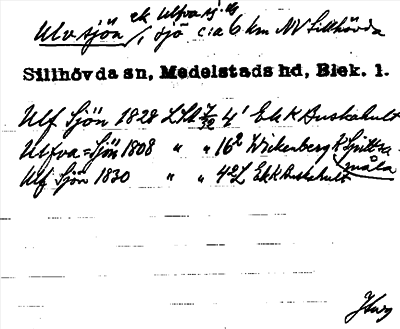 Ulvsjön ek Ulfva sj.
, sjö c:a 6 km NV Sillhövda
Sillhövda sn, Medelstads hd, Blek. 1.
Ulf Sjön 1828 LSA 4' Ek K Buskahult
Ulfva=Sjön 1808 " " 16² Wickenberg K Spittsamåla
Ulf Sjön 1830 " " 42L Ek K Buskahult